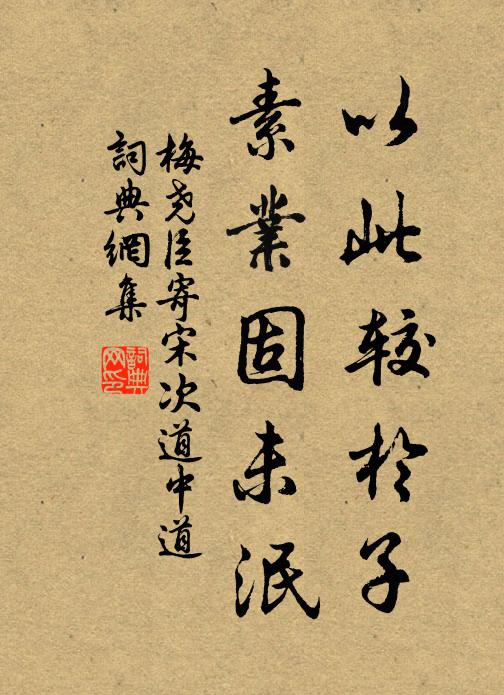 以此较於子
素業固未泯
梅尧臣寄宋次道中道
詞典網集
詞典网印